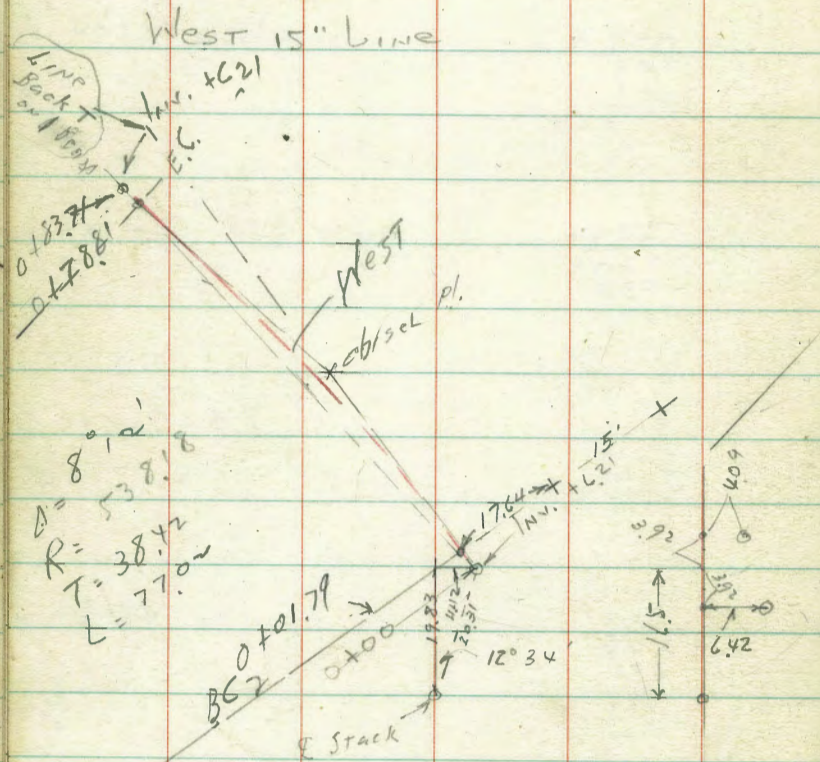 West 15" Line
Line
Back T
on
Inv. +6.21
E.C.
0+83.71
0+78.81
West
offset pt.
Δ= 8° 12'
R= 538.18
T= 38.42
L= 77.02
15.
17.64
Inv. +6.21
0+01.79
B.C.
0+00
19.83
20.31
12° 34'
℄ Stack
4.09
3.92
3.92
11.5
6.42